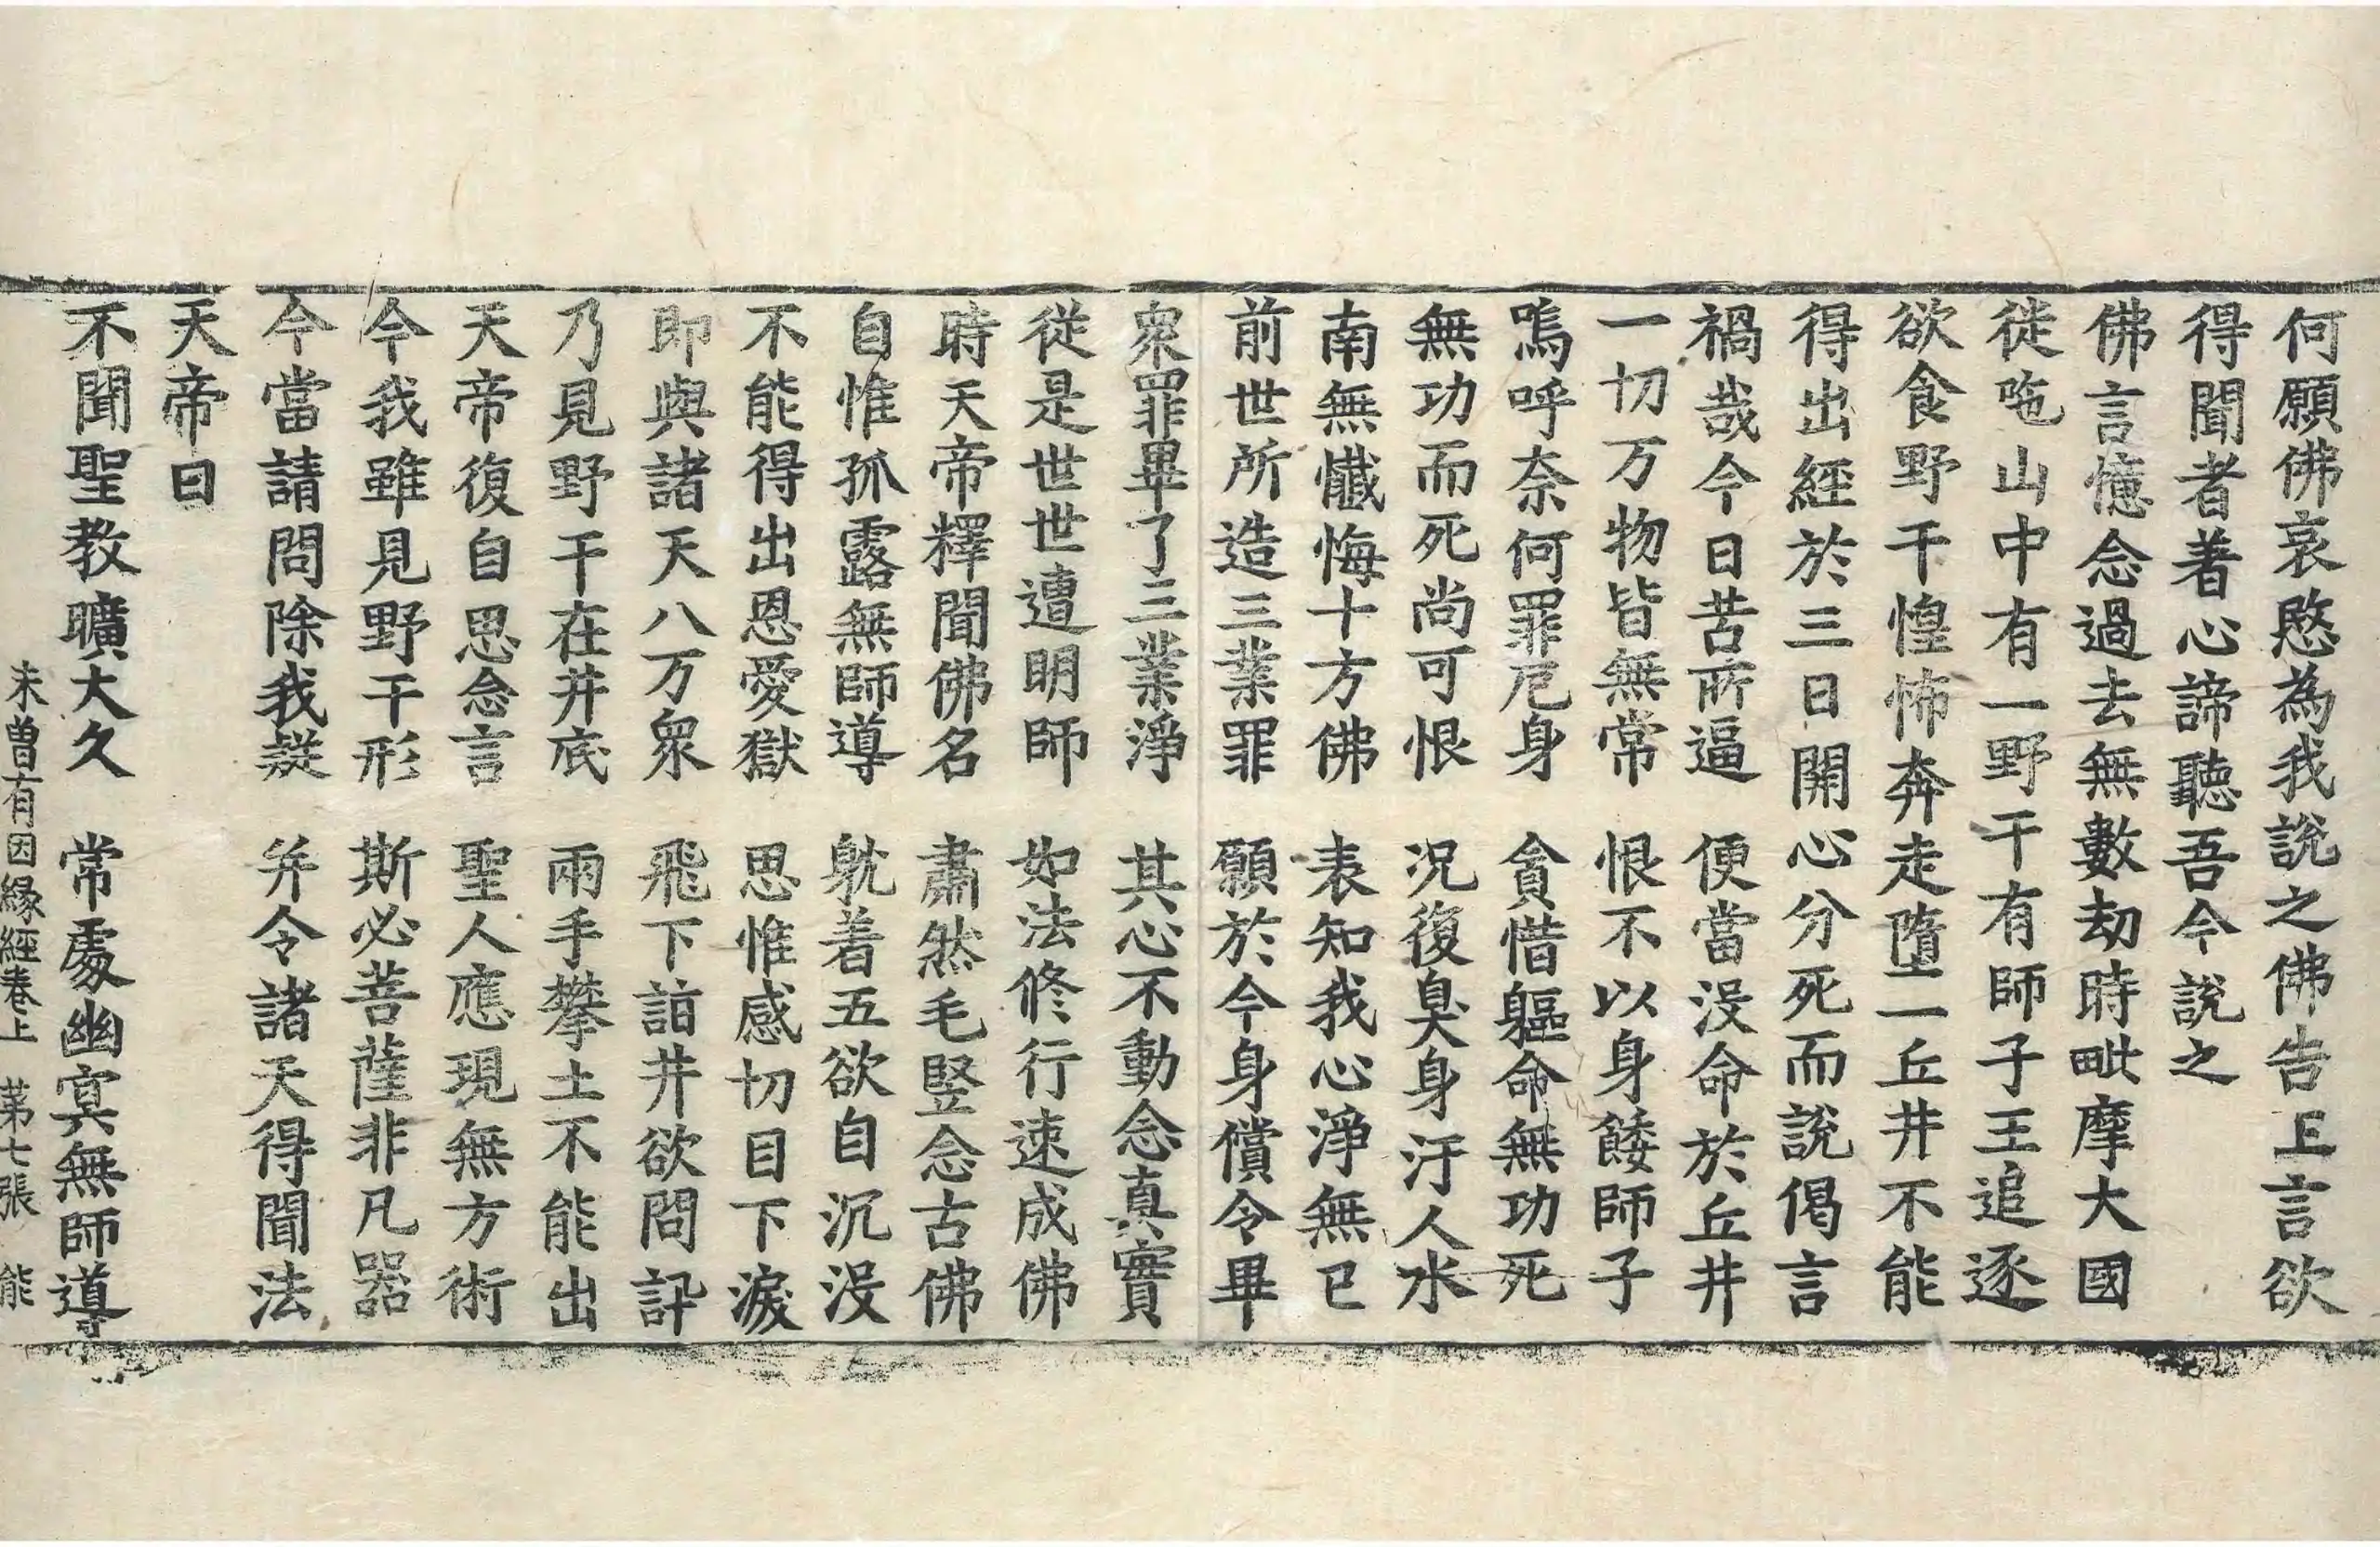 何願佛哀愍為我說之佛告上言欲
得聞者著心諦聽吾今說之
佛言憶念過去無數劫時毗摩大國
徙陁山中有一野干有師子王追逐
欲食野干惶怖奔走墮一丘井不能
得出經於三日開心分死而說偈言
禍哉今日苦所逼　便當没命於丘井
一切万物皆無常　恨不以身餧師子
嗚呼奈何罪厄身　貪惜軀命無功死
無功而死尚可恨　况復臭身汙人水
南無懺悔十方佛　表知我心淨無已
前世所造三業罪　願於今身償令畢
衆罪畢了三業淨　其心不動念真實
從是世世遭明師　如法修行速成佛
時天帝釋聞佛名　肅然毛竪念古佛
自惟孤露無師導　躭着五欲自沉没
不能得出恩愛獄　思惟感切目下淚
即與諸天八万衆　飛下詣井欲問訊
乃見野干在井底　兩手攀土不能出
天帝復自思念言　聖人應現無方術
今我雖見野干形　斯必菩薩非凡器
今當請問除我疑　并令諸天得聞法
天帝曰
不聞聖教曠大久　常處幽冥無師導
未曾有因緣經卷上　苐七張　能